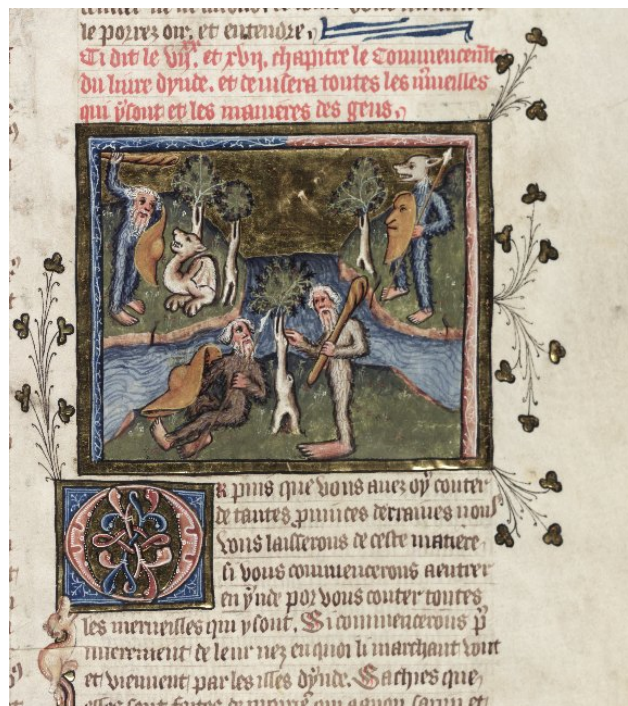 le porrez oir. et entendre.
Ci dit le . et xvij. chapitre le Commencemt
du liure dynde. et deuisera toutes les merueilles
qui ysont et les manieres des gens.
R puis que vous auez oy conter
de tantes prouinces terraines nous
vous lairrons de ceste matiere.
si vous commencerons aentrer
en ynde por vous conter toutes
les merueilles qui ysont. Si commencerons p
mierement de leur nez enquoi li marchant vont
et viennent par les isles dynde. Sachies que
elles sont faites de un et